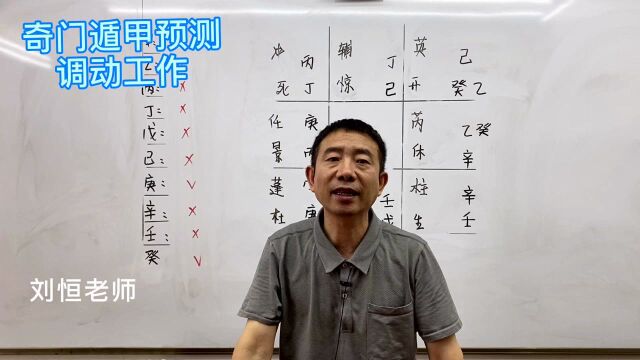 奇门遁甲预测
调动工作
丙 辅 丁 英 己
死 丁 惊 己 开 癸 乙
丙: x
丁: x
戊: x
己: x
庚: v
辛: x
壬: x
癸 v
任 庚 芮 乙 癸
景 休 辛
蓬 柱 辛
杜 庚 壬 生 壬
刘恒老师